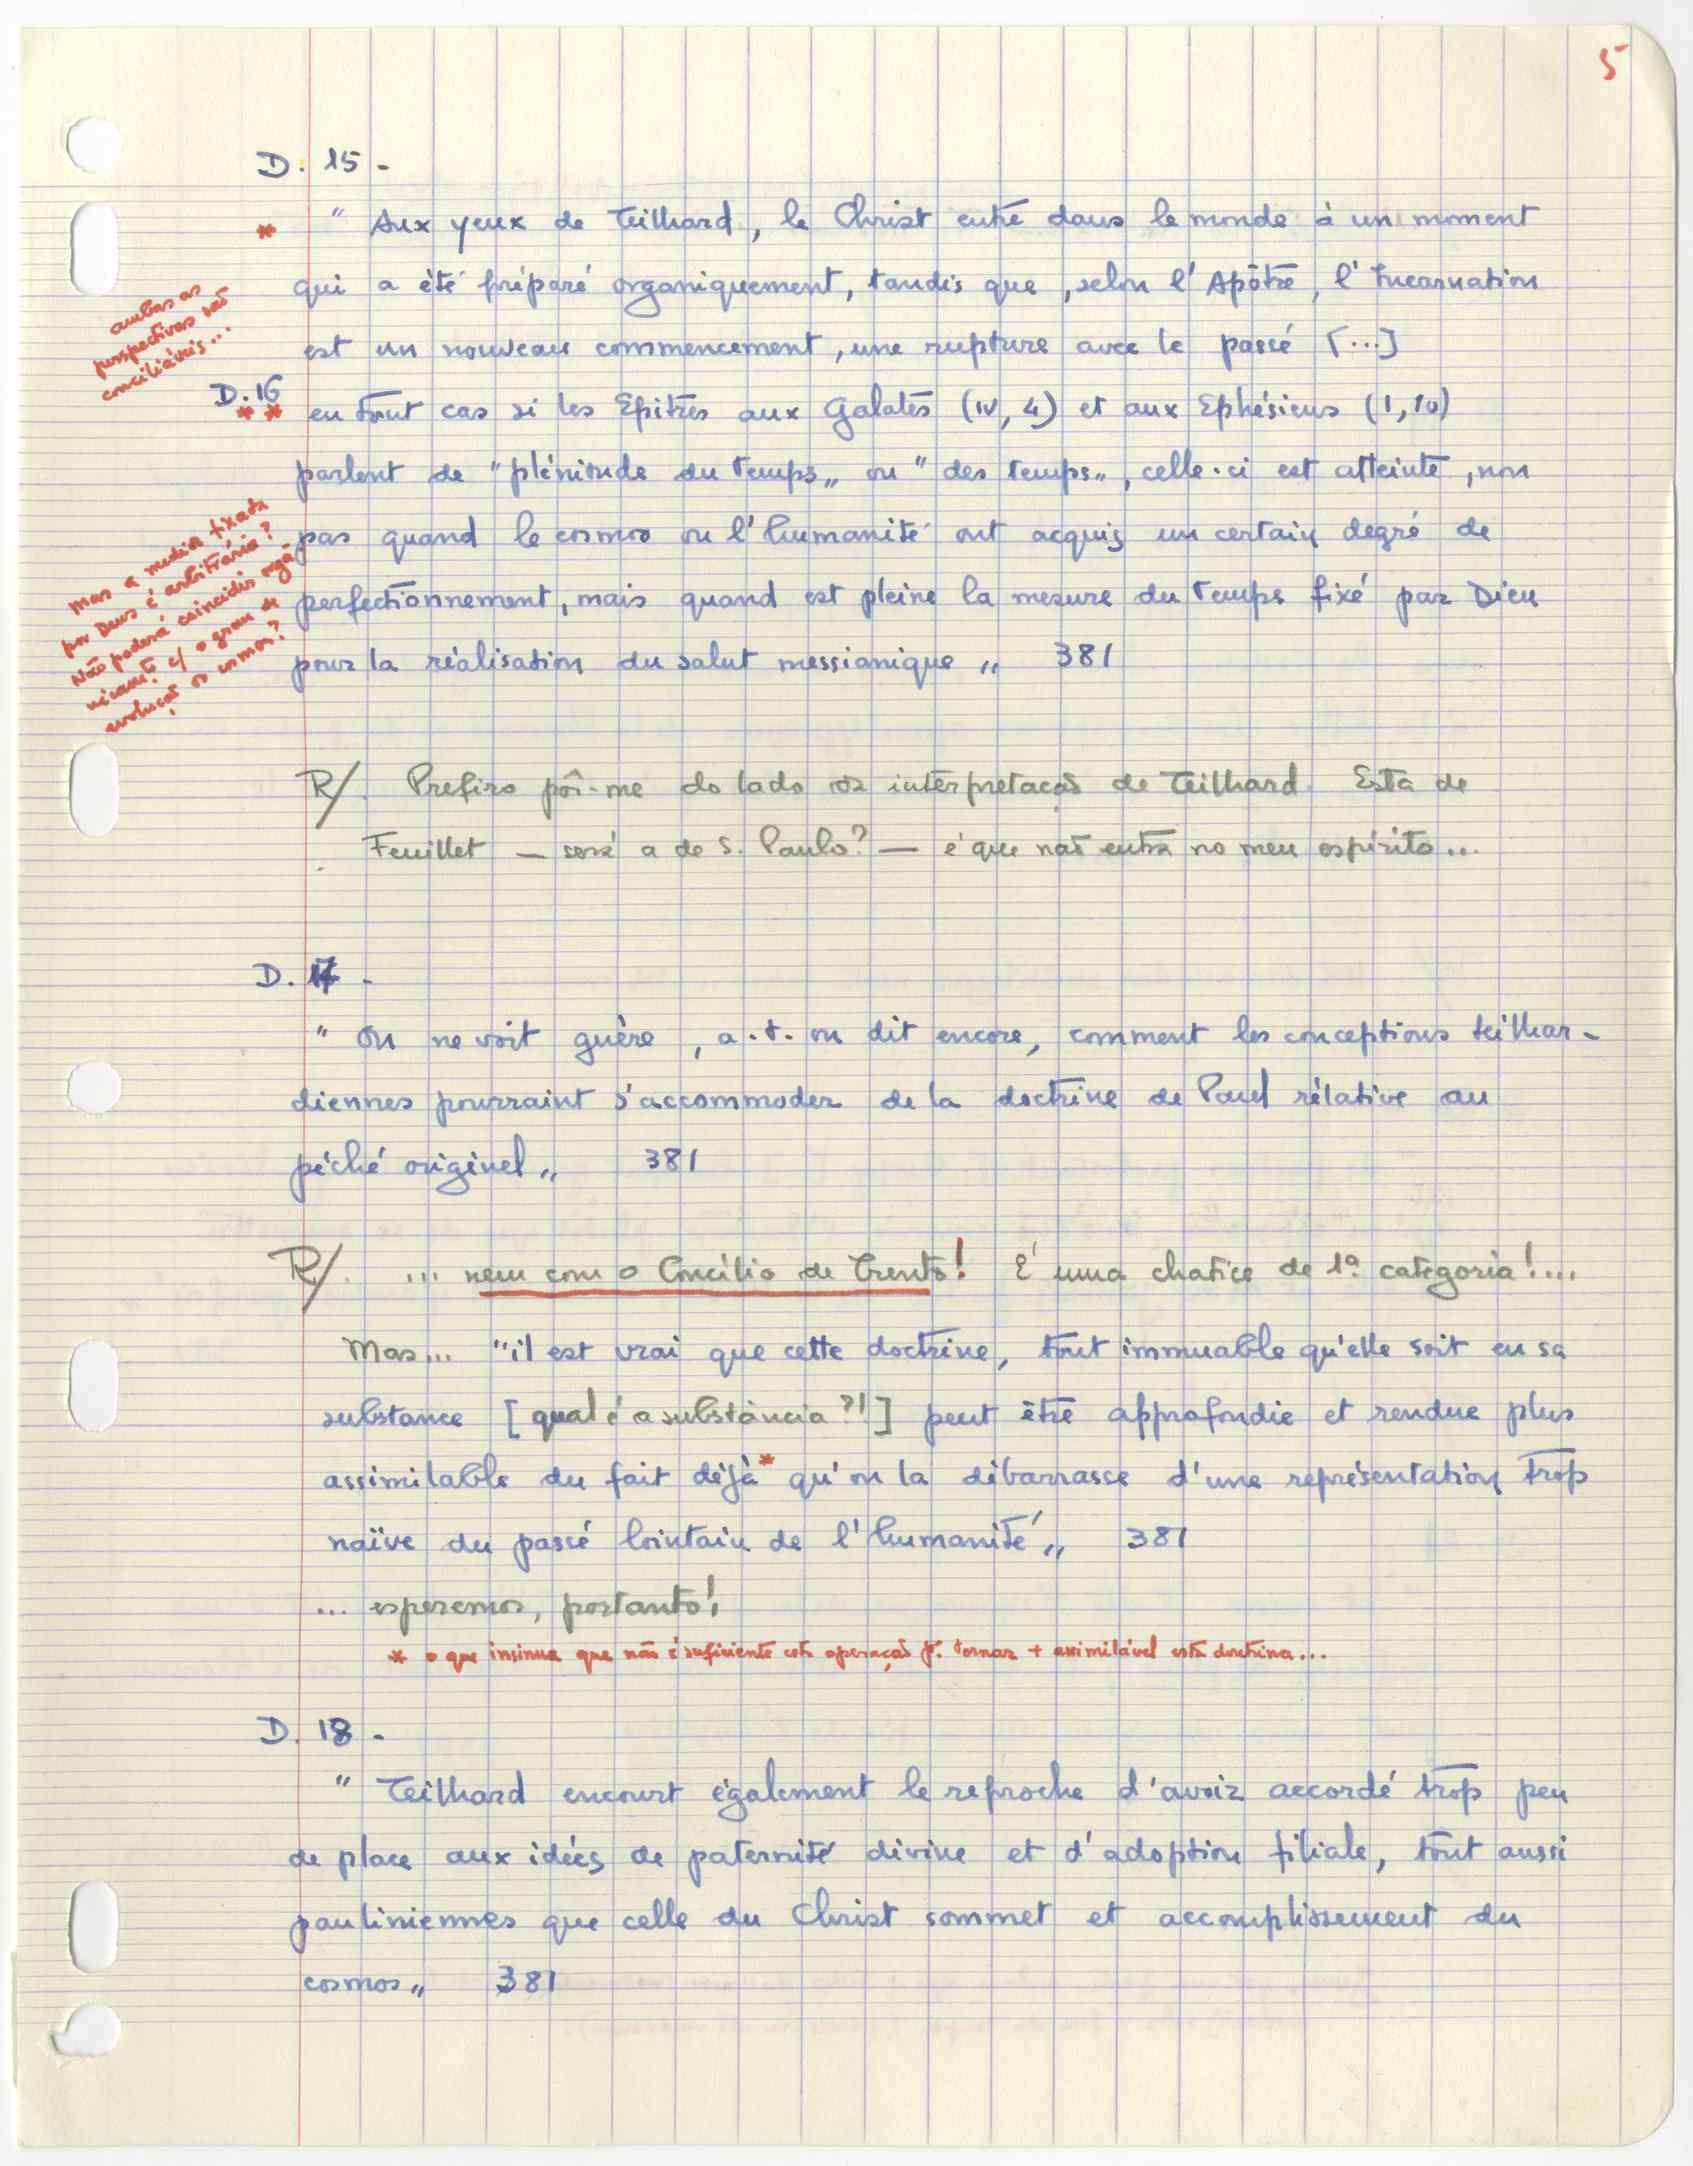 5
D. 15 -
* " Aux yeux de Teilhard, le Christ entre dans le monde à un moment
qui a été préparé organiquement, tandis que, selon l'Apôtre, l'Incarnation
est un nouveau commencement, une rupture avec le passé [...]
ambas as
perspectivas são
conciliáveis...
D. 16
** en tout cas si les Epitres aux Galates (IV, 4) et aux Ephésiens (I, 10)
parlent de "plénitude du temps„ ou "des temps„, celle-ci est atteinte, non
pas quand le cosmos ou l'humanité ont acquis un certain degré de
perfectionnement, mais quand est pleine la mesure du temps fixé par Dieu
pour la réalisation du salut messianique „ 381
mas a medida fixada
por Deus é arbitrária?
Não poderá coincidir orgâ-
nicamte c/ o grau de
evolução do cosmos?
R/. Prefiro pôr-me do lado da interpretação de Teilhard. Esta de
Feuillet — será a de S. Paulo? — é que não entra no meu espírito...
D. 17 -
" On ne voit guère, a.t. on dit encore, comment les conceptions teilhar-
diennes pourraint s'accommoder de la doctrine de Paul rélative au
péché originel „ 381
R/. ... nem com o Concílio de Trento! É uma chatice de 1ª categoria!...
Mas... "il est vrai que cette doctrine, tout immuable qu'elle soit en sa
substance [qual é a substância?!] peut être approfondie et rendue plus
assimilable du fait déjà* qu'on la débarrasse d'une représentation trop
naïve du passé lointain de l'humanité „ 381
... esperemos, portanto!
* o que insinua que não é suficiente esta operação p.ª tornar + assimilável esta doutrina...
D. 18 -
" Teilhard encourt également le reproche d'avoir accordé trop peu
de place aux idées de paternité divine et d'adoption filiale, tout aussi
pauliniennes que celle du Christ sommet et accomplissement du
cosmos „ 381